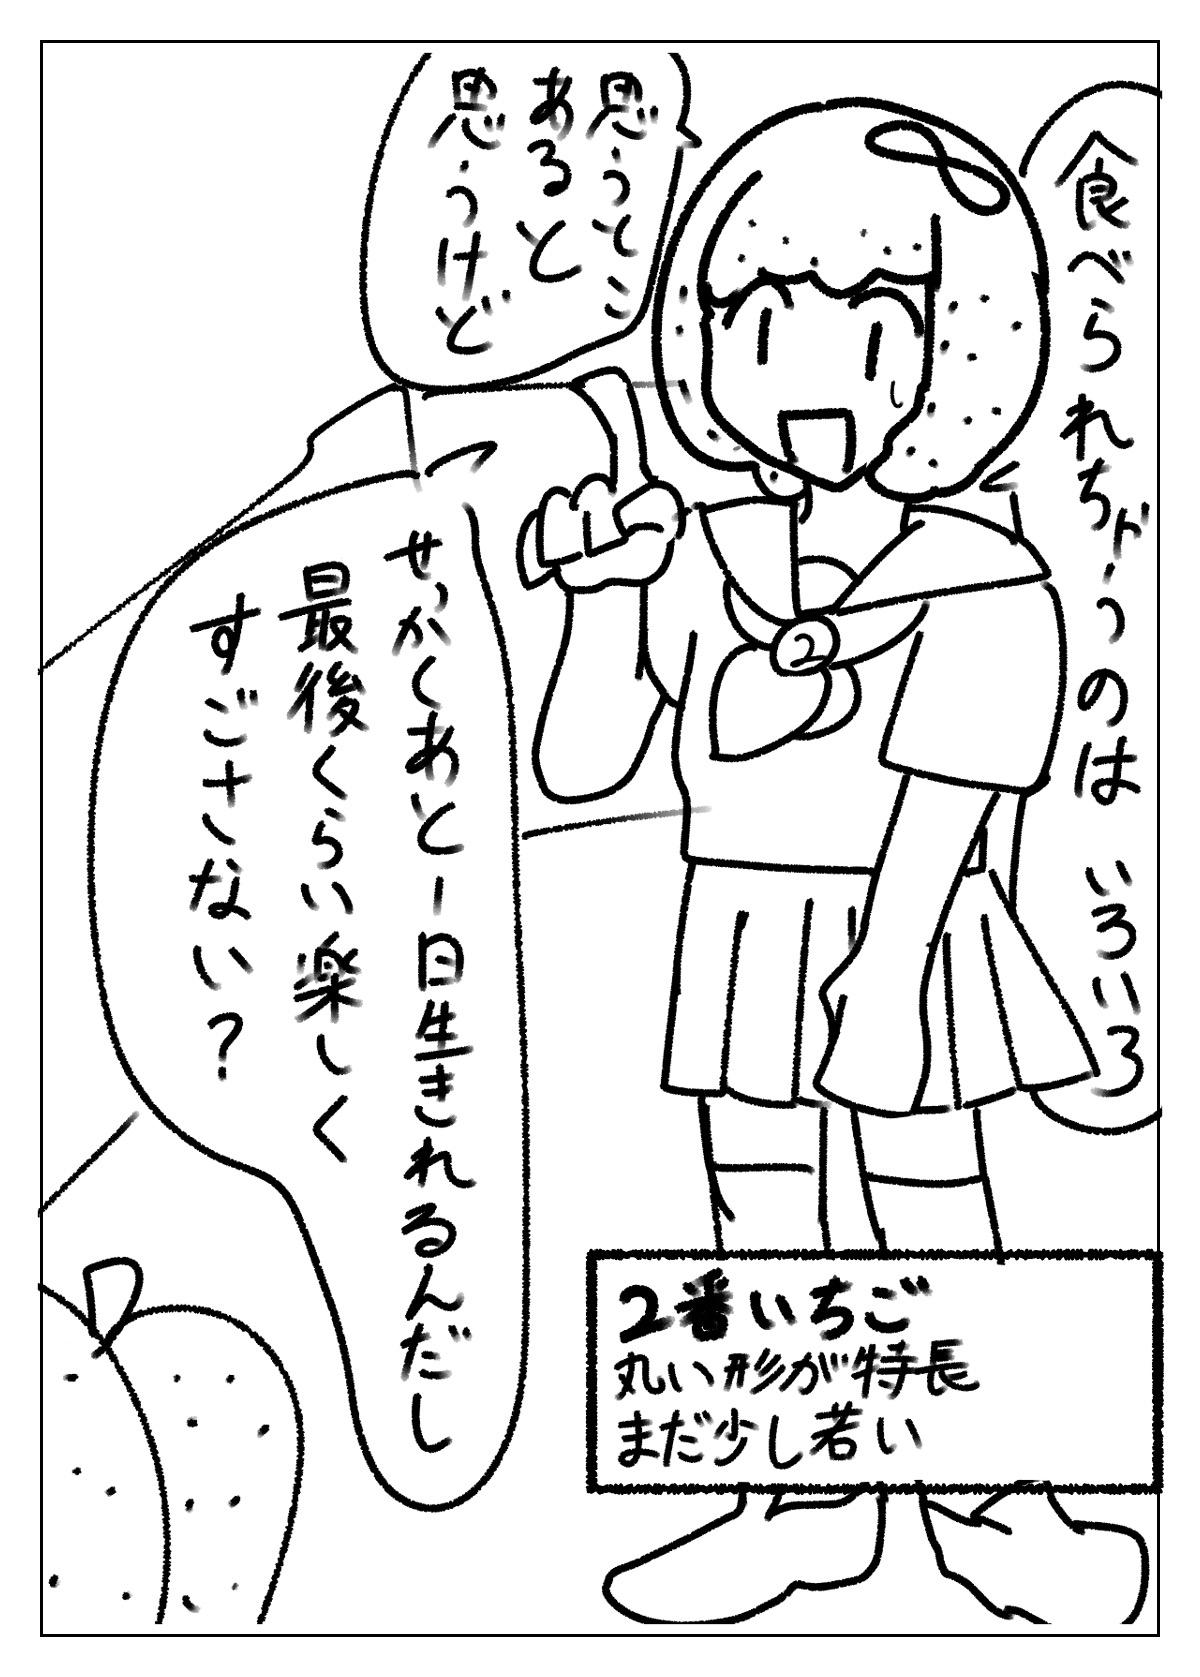 食べられちゃうのは いろいろ
思うとこ
あると
思うけど
せっかくあと一日生きれるんだし
最後くらい楽しく
すごさない?
2
2番いちご
丸い形が特長
まだ少し若い